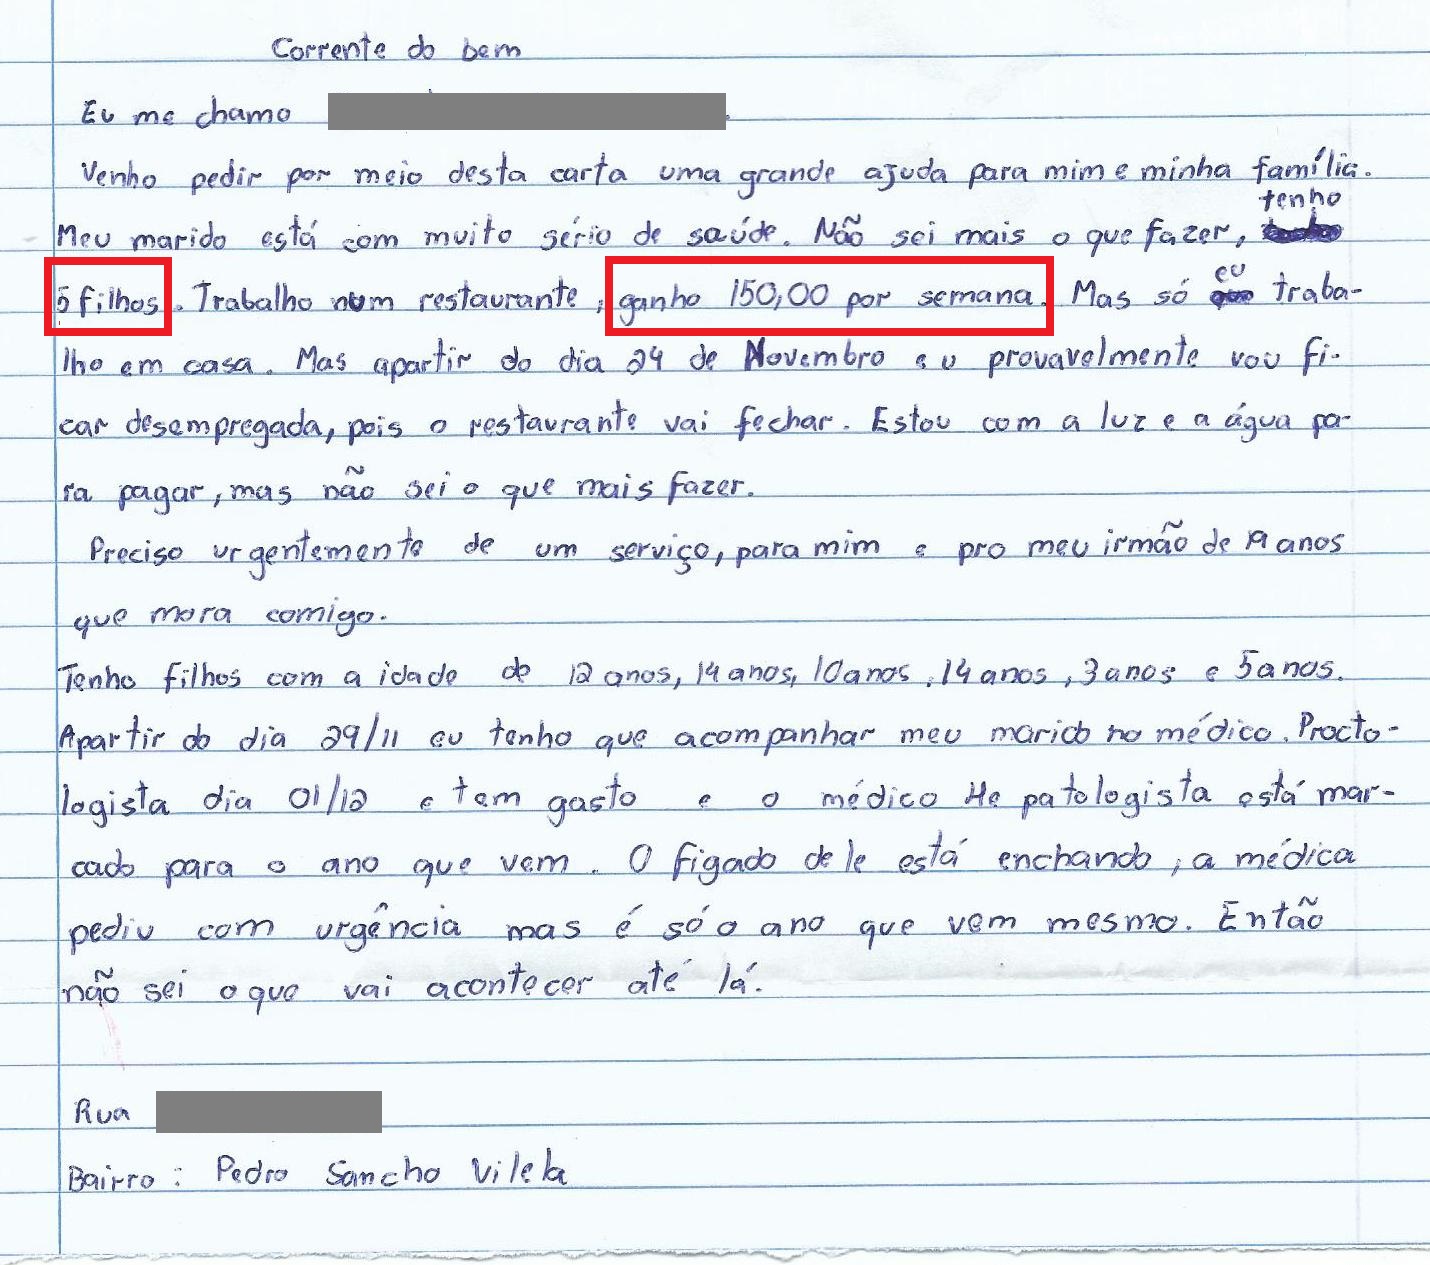 Corrente do bem
Eu me chamo
Venho pedir por meio desta carta uma grande ajuda para mim e minha família.
tenho
Meu marido está com muito sério de saúde. Não sei mais o que fazer,
5 filhos. Trabalho num restaurante, ganho 150,00 por semana. Mas só eu traba-
lho em casa. Mas apartir do dia 24 de Novembro eu provavelmente vou fi-
car desempregada, pois o restaurante vai fechar. Estou com a luz e a água pa-
ra pagar, mas não sei o que mais fazer.
Preciso urgentemente de um serviço, para mim e pro meu irmão de 19 anos
que mora comigo.
Tenho filhos com a idade de 12 anos, 14 anos, 10 anos, 14 anos, 3 anos e 5 anos.
Apartir do dia 29/11 eu tenho que acompanhar meu marido no médico. Procto-
logista dia 01/12 e tem gasto e o médico He patologista está mar-
cado para o ano que vem. O figado dele está enchando, a médica
pediu com urgência mas é só o ano que vem mesmo. Então
não sei o que vai acontecer até lá.
Rua
Bairro: Pedro Sancho Vilela